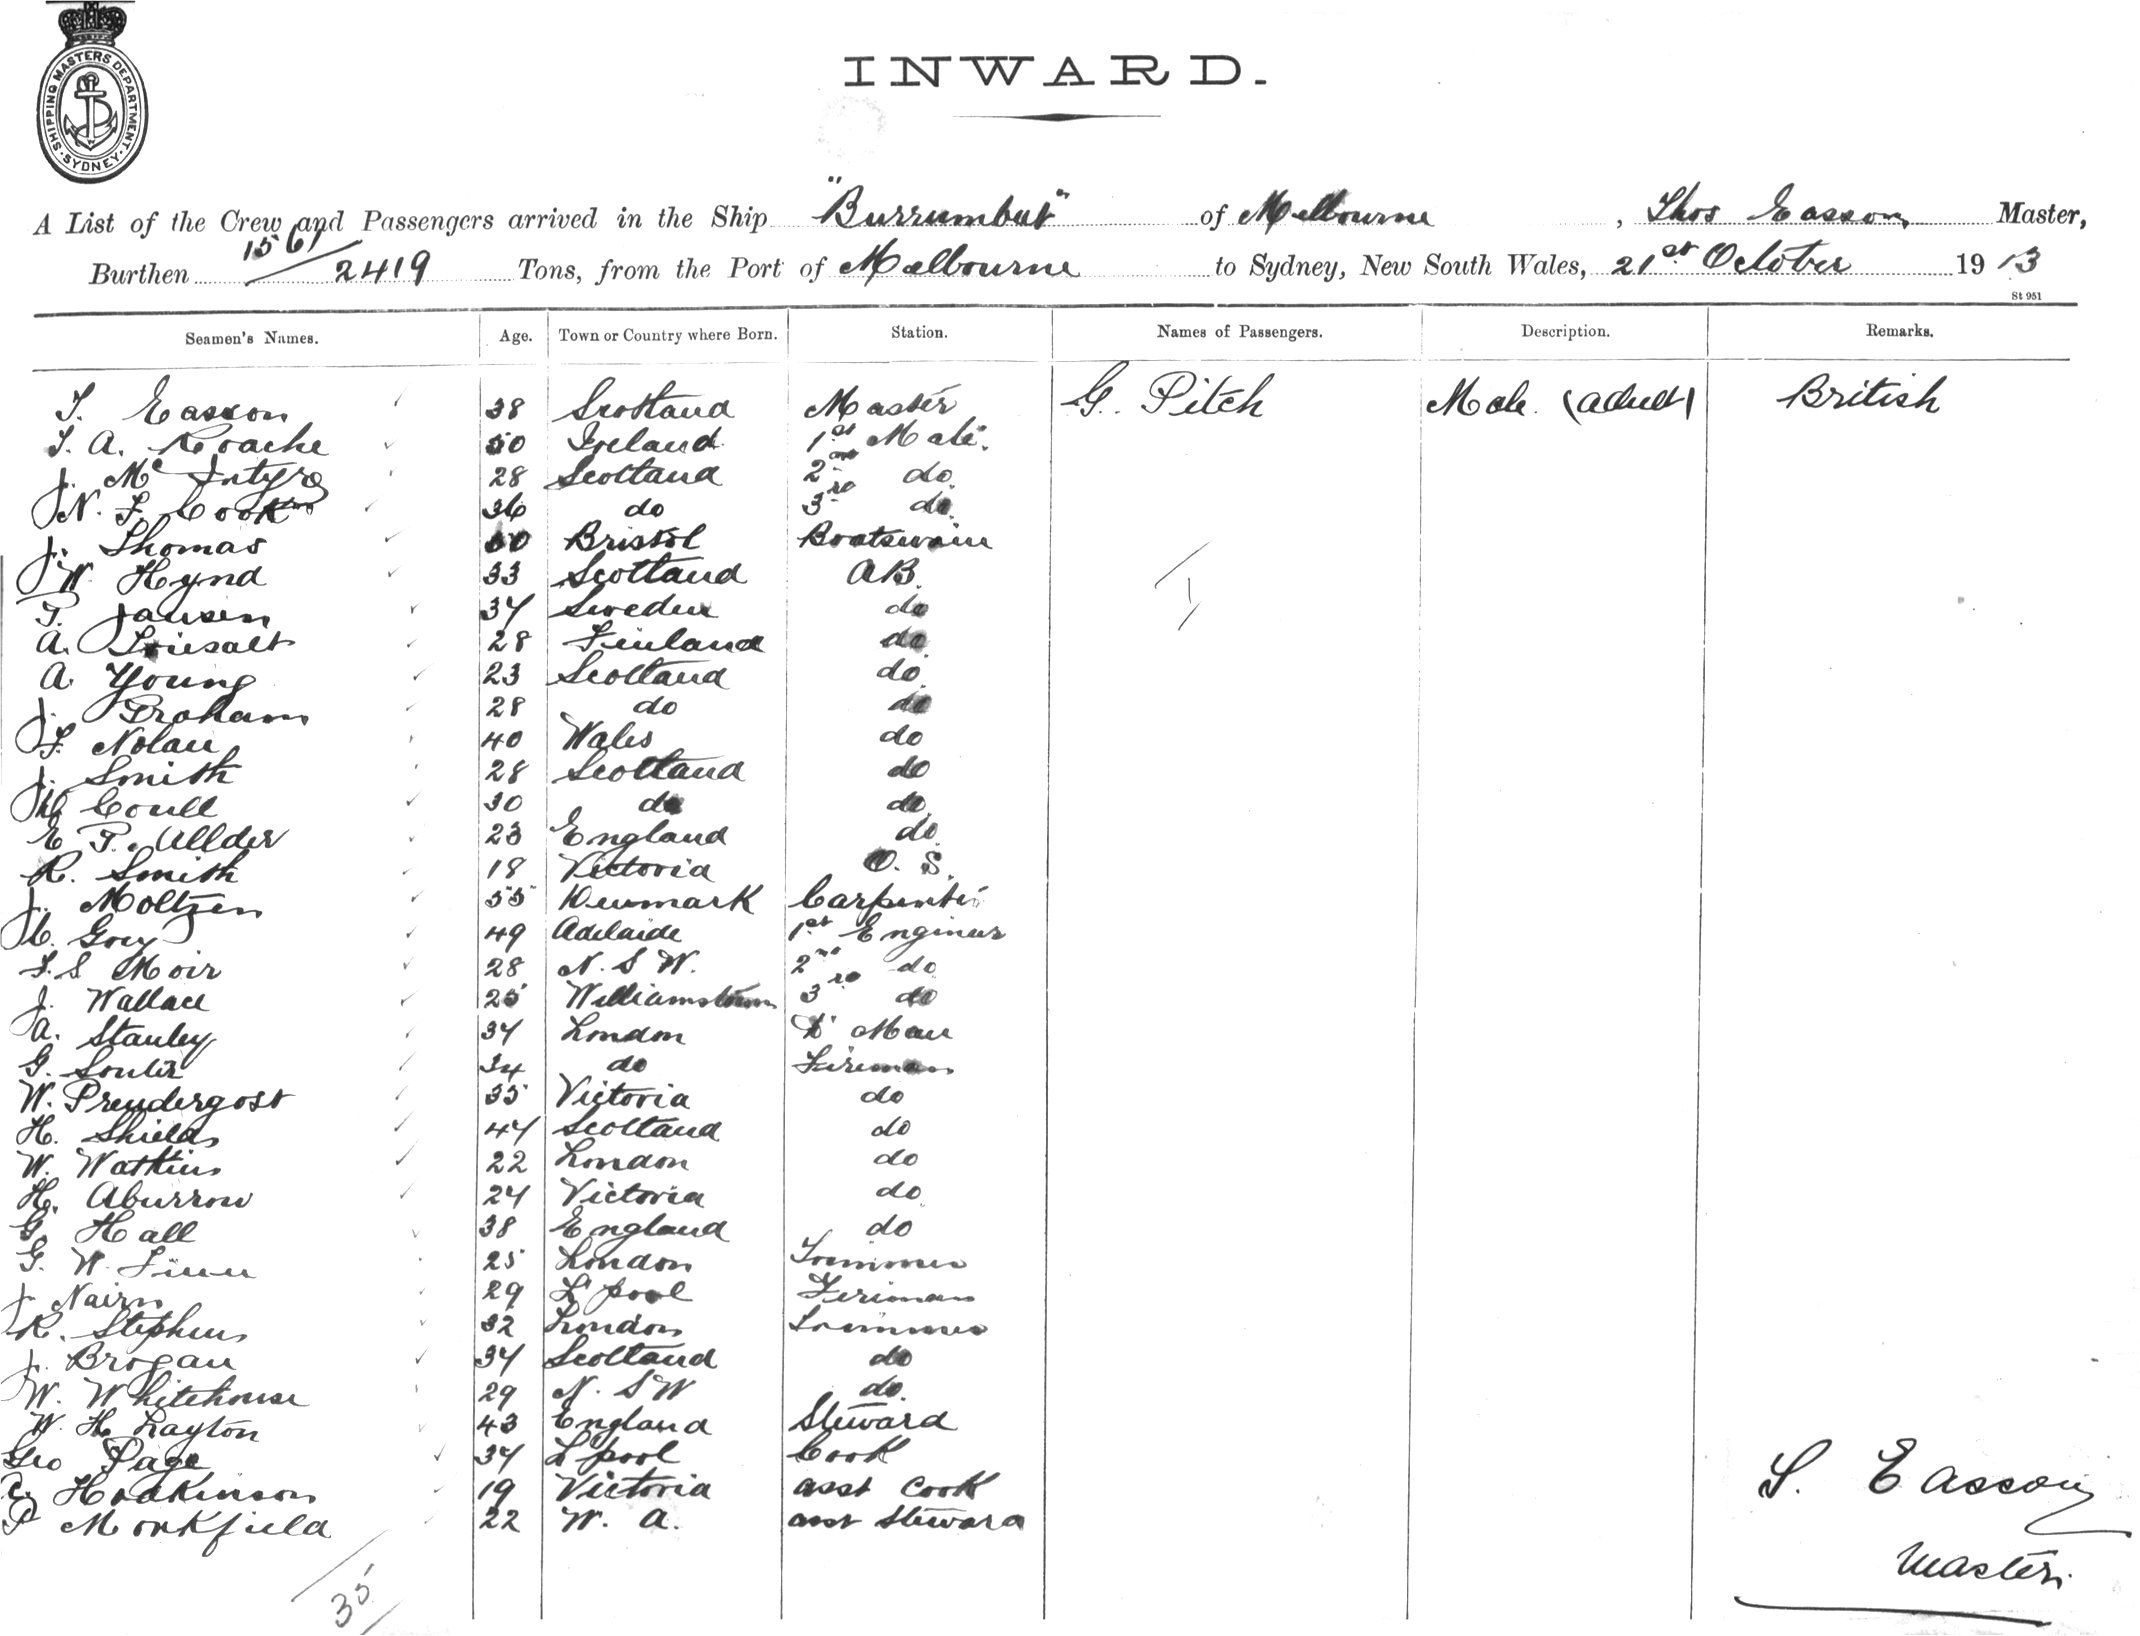 SHIPPING MASTERS DEPARTMENT. SYDNEY
INWARD.
A List of the Crew and Passengers arrived in the Ship "Burrumbeet" of Melbourne, Thos Easson Master,
Burthen 1561/2419 Tons, from the Port of Melbourne to Sydney, New South Wales, 21st October 1913
St 951
Seamen's Names. Age. Town or Country where Born. Station. Names of Passengers. Description. Remarks.
T. Easson 38 Scotland Master G. Pitch Male (adult) British
T. A. Roache 50 Ireland 1st Mate.
J. Mc Intyre 28 Scotland 2nd do
N. F. Cook 36 do 3rd do
J. Thomas 50 Bristol Boatswain
W. Hynd 33 Scotland AB.
P. Jansen 37 Sweden do
A. 28 Finland do
A Young 23 Scotland do
J. Graham 28 do do
F. Nolan 40 Wales do
J. Smith 28 Scotland do
Coull 30 do do
E P. Allder 23 England do
R. Smith 18 Victoria O. S.
J. Moltzen 55 Denmark Carpenter
C. Grey 49 Adelaide 1st Engineer
F. S Moir 28 N. S W. 2nd do
J. Wallace 25 Williamstown 3rd do
A. Stanley 37 London D Man
G. Souter 34 do Fireman
W. Prendergast 35 Victoria do
H. Shields 47 Scotland do
W. Watkins 22 London do
H. Aburrow 24 Victoria do
G. Hall 38 England do
G. W. Finn 25 London Trimmer
J. Nairn 29 L'pool Fireman
R. Stephens 32 London Trimmer
J. Brogan 37 Scotland do
W. Whitehouse 29 N. S W do
W. H. Layton 43 England Steward
Geo Page 37 L'pool Cook
C. Hodkinson 19 Victoria asst Cook
P Monkfield 22 W. A. asst Steward
35
T. Easson
Master.